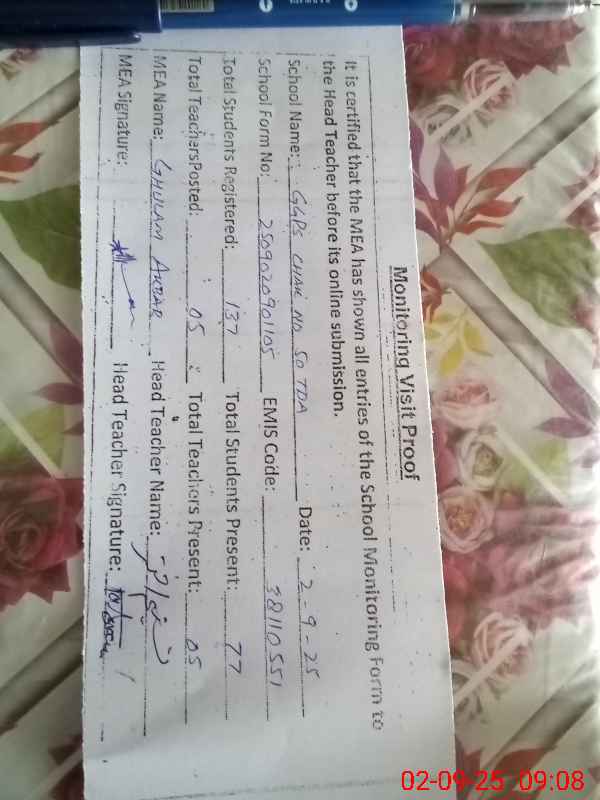 Monitoring Visit Proof
It is certified that the MEA has shown all entries of the School Monitoring Form to
the Head Teacher before its online submission.
School Name: GGPS CHAK NO 50 TDA Date: 2-9-25
School Form No: 2509020901105 EMIS Code: 38110551
Total Students Registered: 137 Total Students Present: 77
Total TeachersPosted: 05 Total Teachers Present: 05
MEA Name: GHULAM AKBAR Head Teacher Name:
MEA Signature: Head Teacher Signature:
02-09-25 09:08